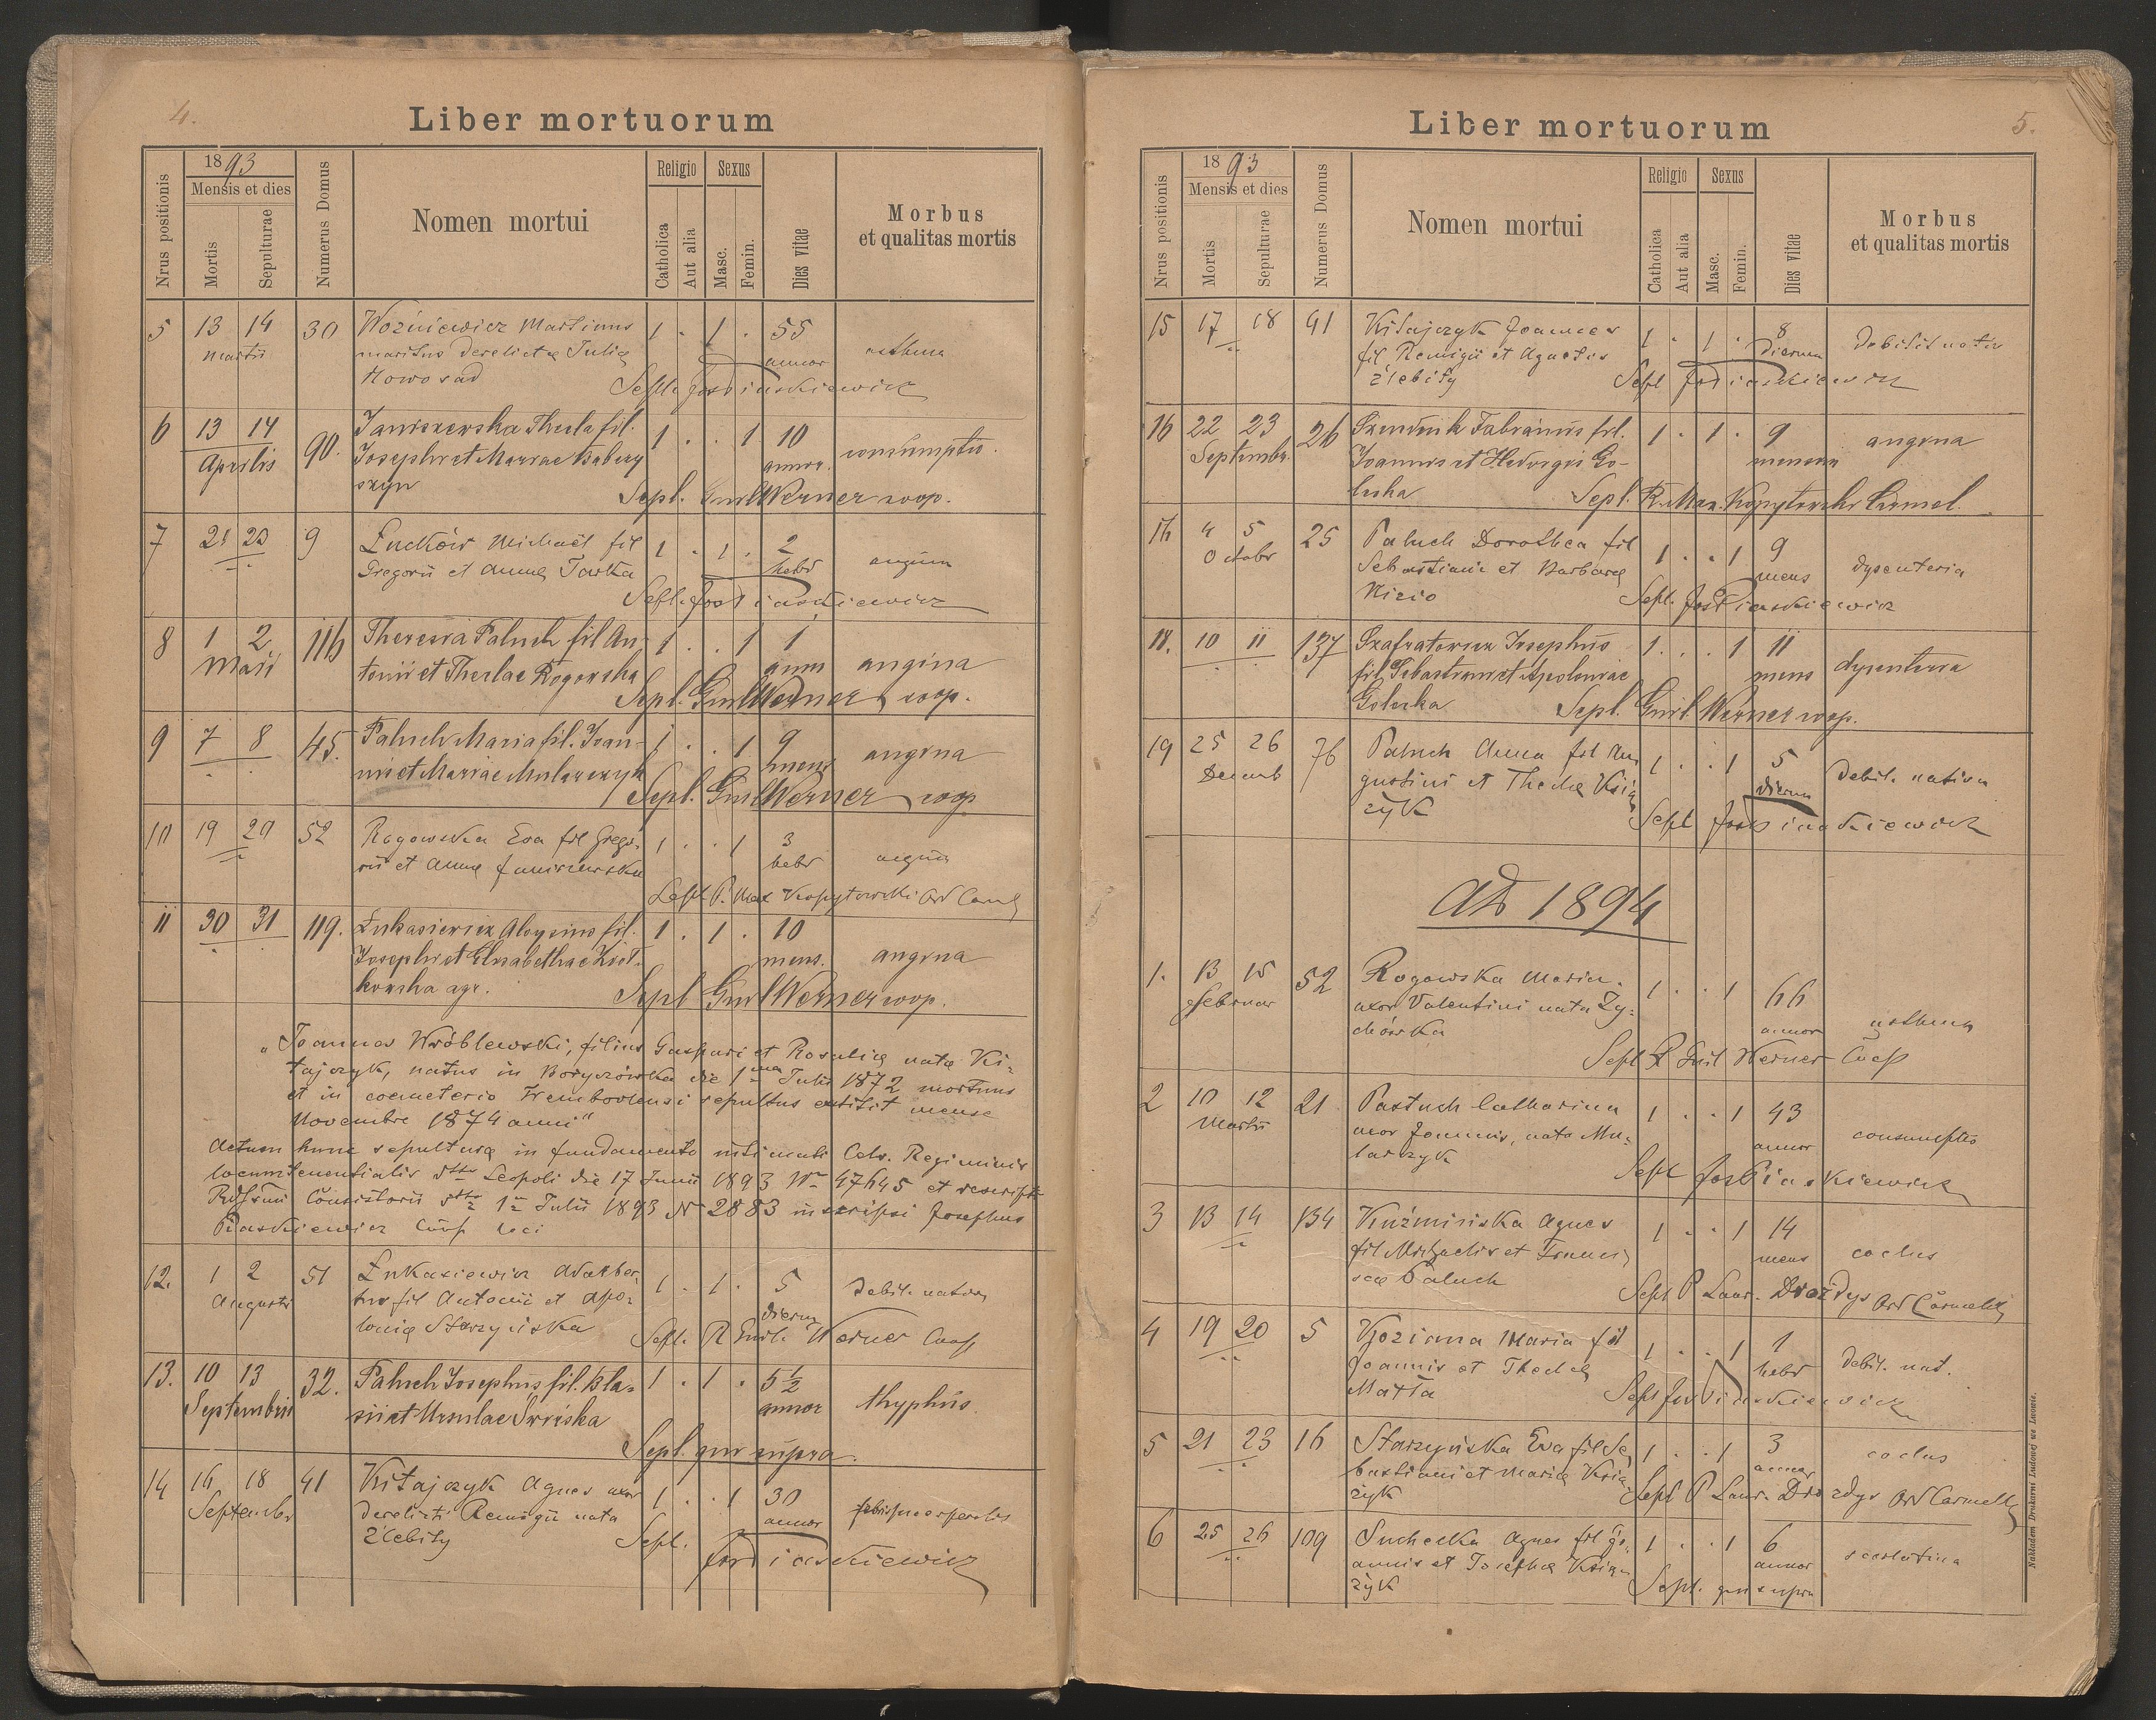 4.
Liber mortuorum
Nrus positionis
1893
Mensis et dies
Mortis
Sepulturae
Numerus Domus
Nomen mortui
Religio
Catholica
Aut alia
Sexus
Masc.
Femin.
Dies vitae
Morbus
et qualitas mortis
5 13 14 30 Woźniewicz Martinus 1 . 1 . 55
Martii maritus derelictae Juliae annor asthma
Nowosad Sepl. Jos Piaskiewicz
6 13 14 90. Janiszewska Thecla fil. 1 . . 1 10
Aprilis Josephi et Mariae Babczy annor. consumptio.
szyn Sepl. Guil Werner coop.
7 21 23 9 Łucków Michaël fil 1 . 1 . 2
Gregorii et Annae Tarka hebd angina
Sepl. Jos Piaskiewicz
8 1 2 116 Theresia Paluch fil An- 1 . . 1 1
Maii tonii et Theclae Rogowska anni angina
Sepl. Guil Werner coop.
9 7 8 45. Paluch Maria fil. Joan- 1 . . 1 9
nis et Mariae Mularczyk mens angina
Sepl. Guil Werner coop
10 19 20 52 Rogowska Eva fil Grego- 1 . . 1 3
rii et Annae Janiszewska hebd angina
Sepl. P. Max Kopytowski Ord Carm
11 30 31 119. Łukasiewicz Aloysius fil. 1 . 1 . 10
Josephi et Elisabethae mens. angina
kowska agr. Sepl Guil Werner coop.
„Joannes Wróblewski, filius Gaspari et Rosaliae nata Ki-
tajczyk, natus in Boryczówka die 1ma Julii 1872 mortuus
et in coemeterio Trembovlensi sepultus extitit mense
Novembre 1874 anni"
Actum hunc sepulturae in fundamento intimati Cels. Regiminis
locumtenentialis dtto Leopoli die 17 Junii 1893 Nr 47645 et rescripti
Consistorii dtto 1 Julii 1893 N 2883 inscripsi Josephus
Piaskiewicz loci
12. 1 2 51 Łukasiewicz Adalber- 1 . 1 . 5
Augusti tus fil Antonii et Apo- dierum Debil. nativa
loniae Starzyńska Sepl. R Guil. Werner Coop
13. 10 13 32. Paluch Josephus fil. Bla- 1 . 1 . 5½
Septembris sii et Ursulae annor thyphus.
Sepl. qui supra.
14 16 18 41 Kitajczyk Agnes uxor 1 . . 1 30
Septembr derelicti Remigii nata annor febris puerperalis
Żlebity Sepl. Jos Piaskiewicz
5.
Liber mortuorum
Nrus positionis
1893
Mensis et dies
Mortis
Sepulturae
Numerus Domus
Nomen mortui
Religio
Catholica
Aut alia
Sexus
Masc.
Femin.
Dies vitae
Morbus
et qualitas mortis
15 17 18 41 Kitajczyk Joannes 1 . 1 . 8
fil Remigii et Agnetis dierum Debilit nativ
Żlebity Sepl Jos Piaskiewicz
16 22 23 26 Fabianus fil. 1 . 1 . 9
Septembr. Joannis et Hedvigis Go- mensium angina
lecka Sepl. R. Max. Kopytowski Carmel.
16 4 5 25 Paluch Dorothea fil 1 . . 1 9
Octobr Sebastiani et Barbara mens dysenteria
Nicio Sepl. Jos Piaskiewicz
18. 10 11 137 Szafratowicz Josephus 1 . . 1 11
fil Sebastiani et Apoloniae mens dysenteria
Golecka Sepl. Guil Werner coop.
19 25 26 76 Paluch Anna fil Au- 1 . . 1 5
Decemb gustini et Theclae Księ- dierum Debil. nativa
żyk Sepl Jos Piaskiewicz
AD 1894
1. 13 15 52 Rogowska Maria 1 . . 1 66
Februar uxor Valentini nata Zy- annor asthma
chówka Sepl R Guil Werner Coop
2 10 12 21 Pastuch Catharina 1 . . 1 43
Martii uxor Joannis, nata Mu- annor consumptio
larczyk Sepl Jos Piaskiewicz
3 13 14 134 Kuźmińska Agnes 1 . . 1 14
fil Michaelis et Francis- mens coclus
cae Paluch Sepl P Laur. Drozdys Ord Carmelit
4 19 20 5 Maria fil 1 . . 1 1
Joannis et Theclae hebd Debil. nat.
Matła Sepl Jos Piaskiewicz
5 21 23 16 Starzyńska Eva fil Se- 1 . . 1 3
bastiani et Mariae Księ- annor coclus
żyk Sepl P Laur. Drozdys Ord Carmelit
6 25 26 109 Suchecka Agnes fil Jo- 1 . . 1 6
annis et Josephae Księ- annor scarlatina
żyk Sepl. qui supra
Nakładem Drukarni Ludowej we Lwowie.